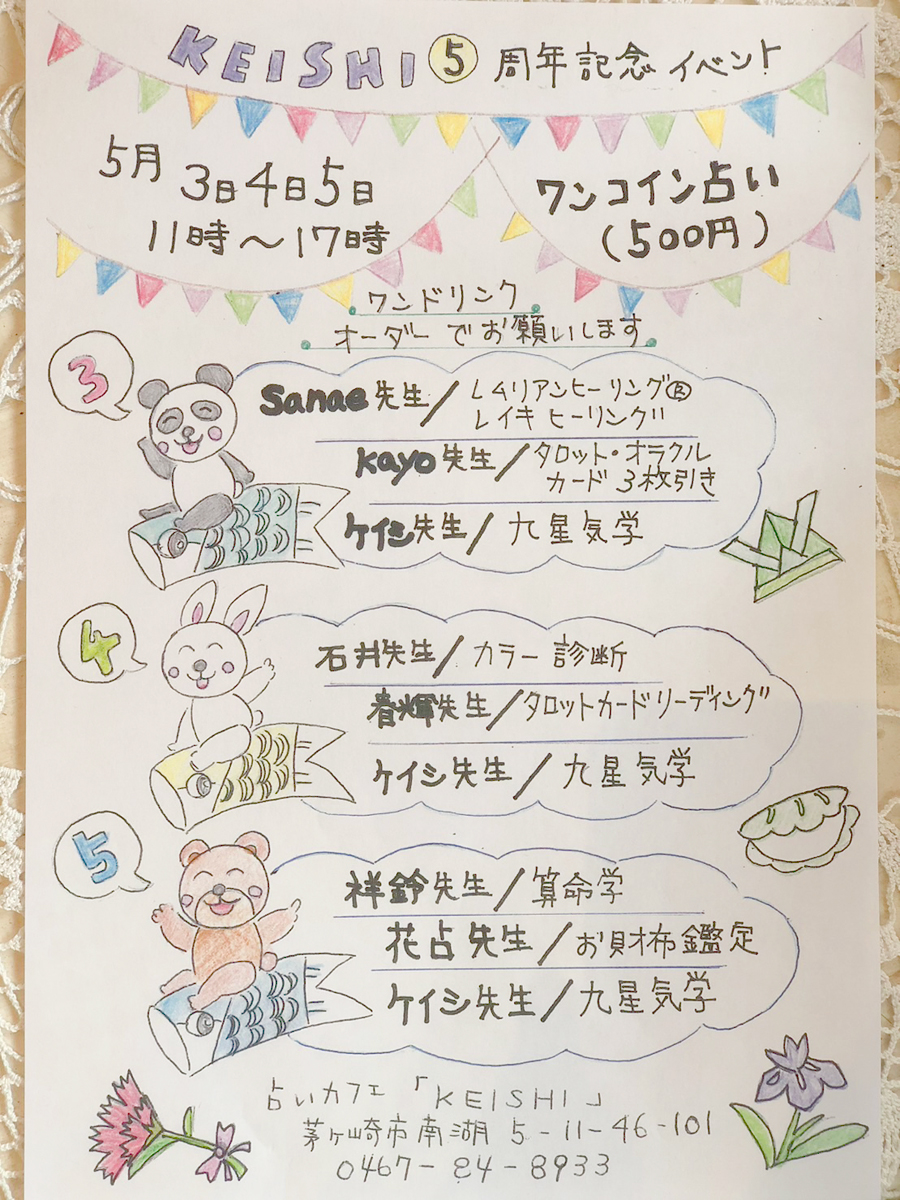 KEISHI⑤周年記念イベント
5月3日4日5日
11時〜17時
ワンコイン占い
(500円)
ワンドリンク
オーダーでお願いします
3
Sanae先生/レムリアンヒーリング
レイキヒーリング
Kayo先生/タロット・オラクル
カード3枚引き
ケイシ先生/九星気学
4
石井先生/カラー診断
春輝先生/タロットカードリーディング
ケイシ先生/九星気学
5
祥鈴先生/算命学
花占先生/お財布鑑定
ケイシ先生/九星気学
占いカフェ「KEISHI」
茅ヶ崎市南湖5-11-46-101
0467-84-8933